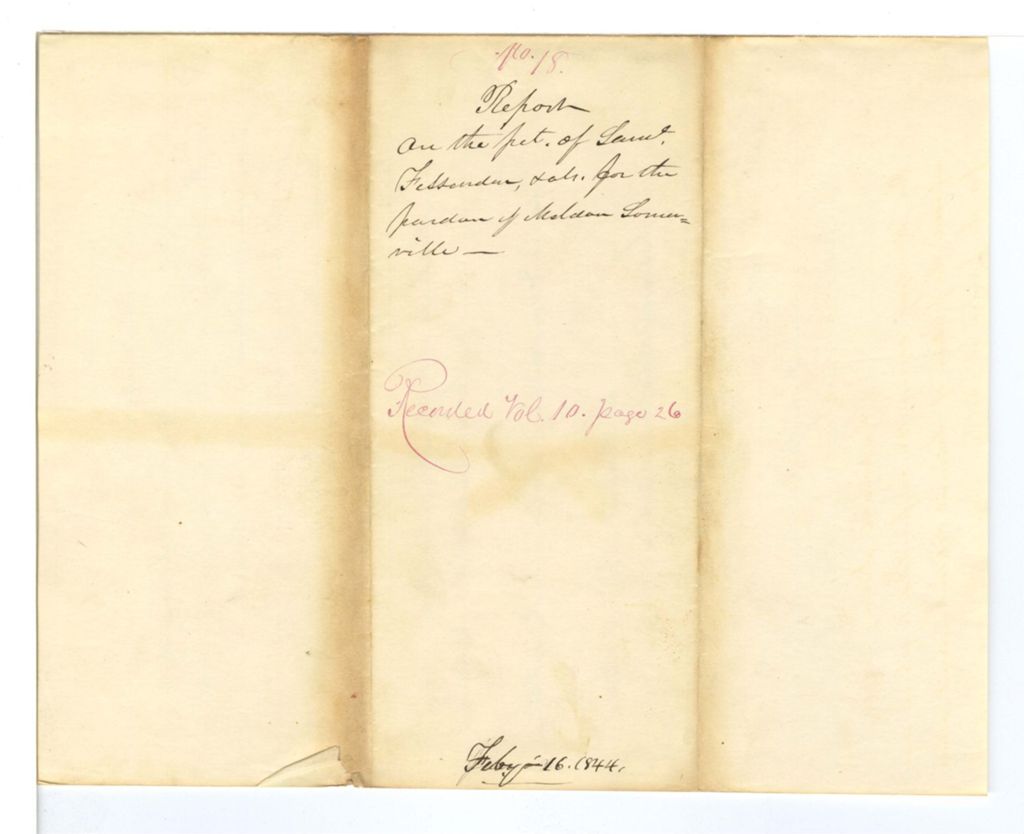 No. 18.
Report
on the pet. of Saml.
Fessenden, & als. for the
pardon of Meldon Somer=
ville —
Recorded Vol. 10. page 26
Feby — 16. 1844.